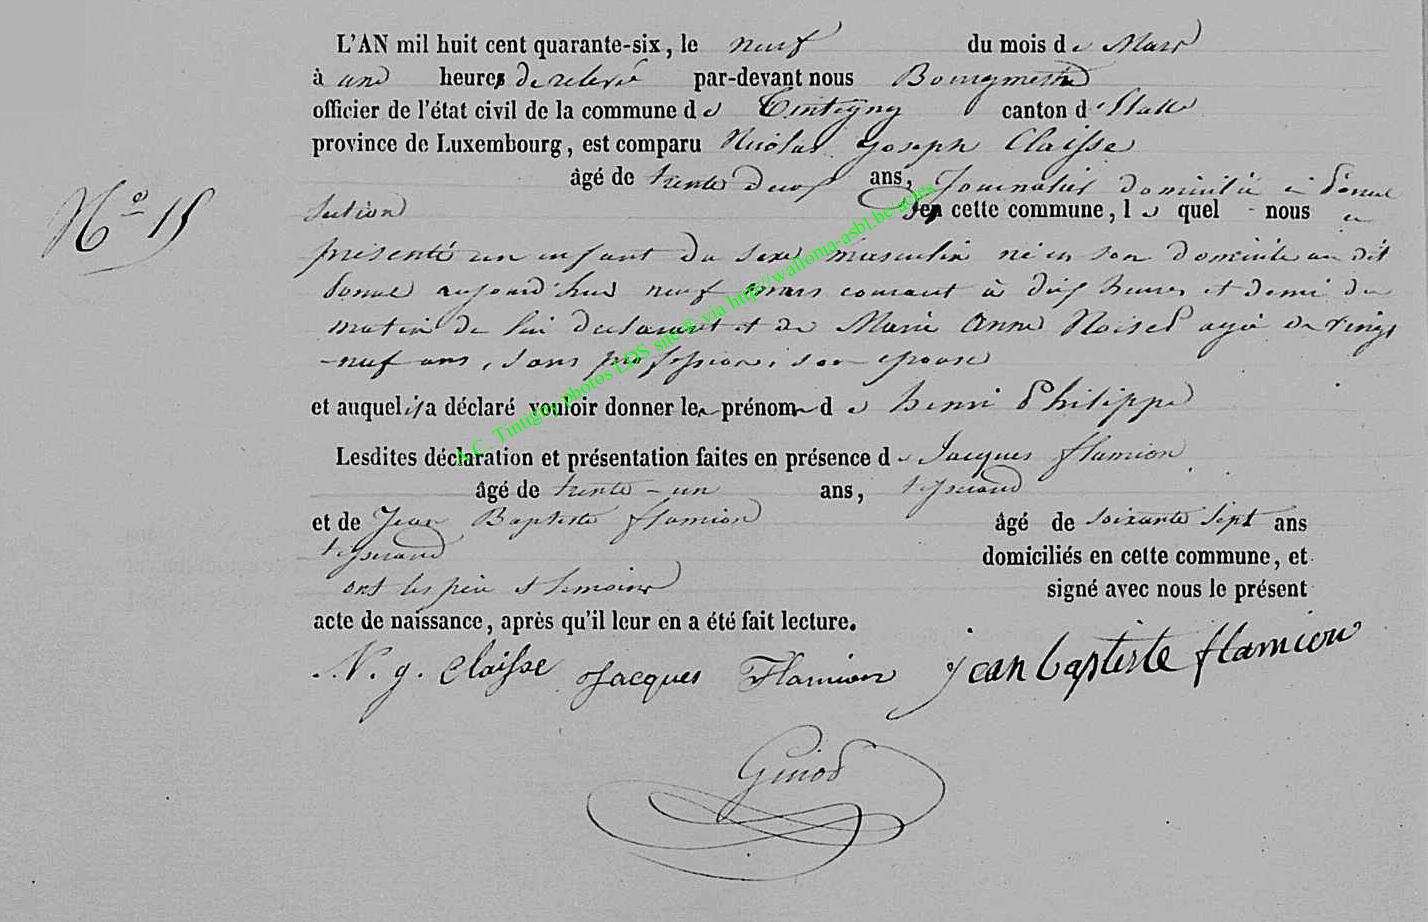 L'AN mil huit cent quarante-six, le neuf du mois de Mars
à une heures de relevée par-devant nous Bourgmestre
officier de l'état civil de la commune de Tintigny canton d'Etalle
province de Luxembourg, est comparu Nicolas Joseph Claisse
âgé de trente deux ans, Journalier domicilié à Han
N° 15
section en cette commune, le quel nous a
présenté un enfant du sexe masculin né en son domicile au dit
aujourd'hui neuf mars courant à dix heures et demi du
matin de lui déclarant et de Marie Anne agée de vingt
-neuf ans, sans profession, son épouse
et auquel il a déclaré vouloir donner les prénoms de henri Philippe
Lesdites déclaration et présentation faites en présence de Jacques flamion
âgé de trente-un ans, tisserand
et de Jean Baptiste flamion âgé de soixante sept ans
tisserand domiciliés en cette commune, et
ont les père et temoins signé avec nous le présent
acte de naissance, après qu'il leur en a été fait lecture.
N. j. Claisse Jacques Flamion jean baptiste flamion
A.C. Tintigny photos LDS site® via http://wallonia-asbl.be/actes